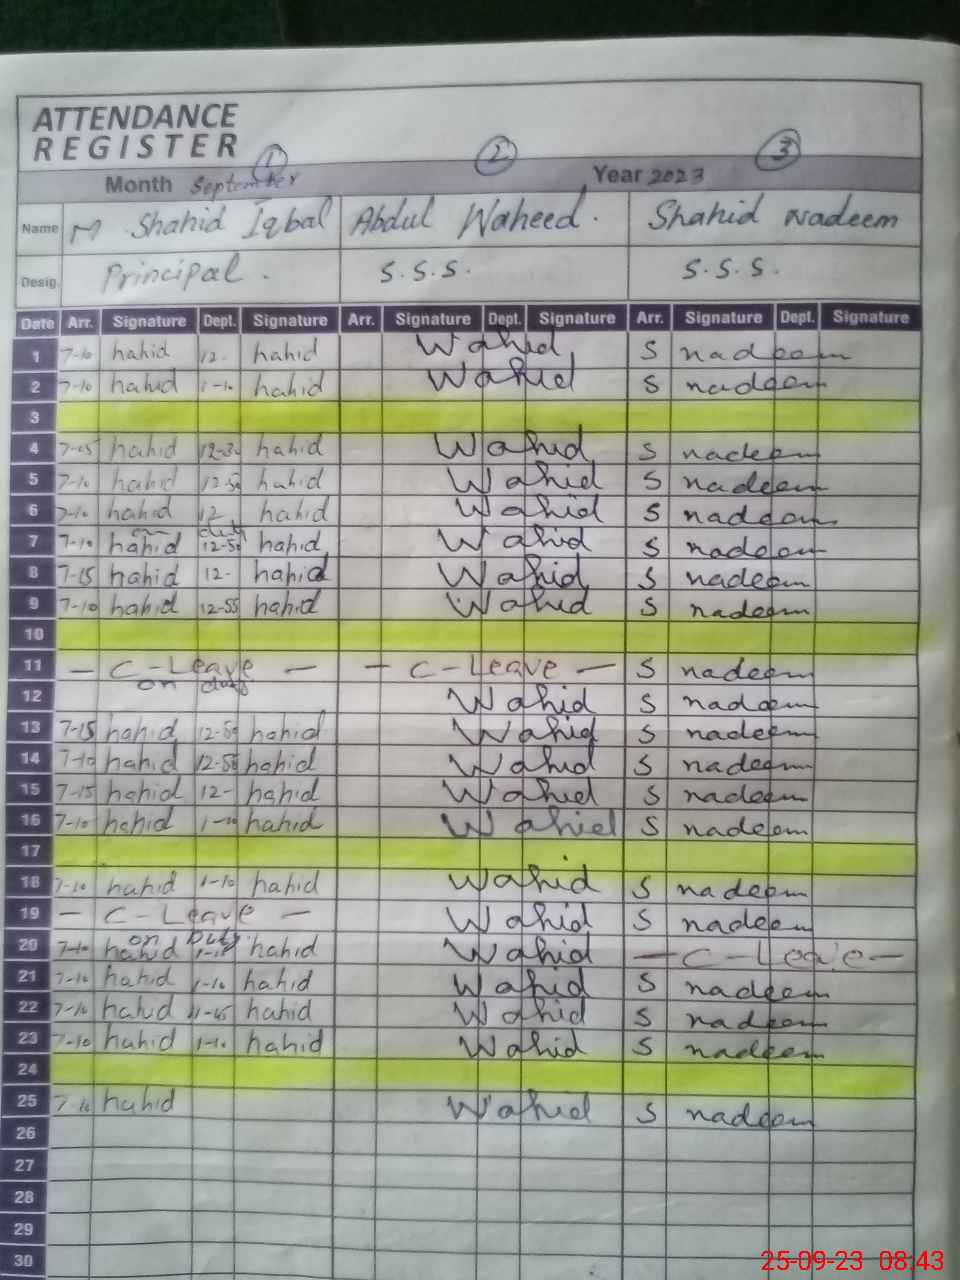 ATTENDANCE
REGISTER
1 2 3
Month September Year 2023
Name M Shahid Iqbal Abdul Waheed. Shahid Nadeem
Desig. Principal. S.S.S. S.S.S.
Date Arr. Signature Dept. Signature Arr. Signature Dept. Signature Arr. Signature Dept. Signature
1 7-10 hahid 12- hahid Wahid S nadeem
2 7-10 hahid 1-10 hahid Wahid S nadeem
3
4 7-15 hahid 12-30 hahid Wahid S nadeem
5 7-10 hahid 12-50 hahid Wahid S nadeem
6 7-10 hahid 12 hahid Wahid S nadeem
on duty
7 7-10 hahid 12-50 hahid Wahid S nadeem
8 7-15 hahid 12- hahid Wahid S nadeem
9 7-10 hahid 12-55 hahid Wahid S nadeem
10
11 - C-Leave - - C-Leave - S nadeem
12 on duty Wahid S nadeem
13 7-15 hahid 12-50 hahid Wahid S nadeem
14 7-10 hahid 12-50 hahid Wahid S nadeem
15 7-15 hahid 12- hahid Wahid S nadeem
16 7-10 hahid 1-10 hahid Wahid S nadeem
17
18 7-10 hahid 1-10 hahid Wahid S nadeem
19 - C-Leave - Wahid S nadeem
on Duty
20 7-10 hahid hahid Wahid - C-Leave -
21 7-10 hahid 1-10 hahid Wahid S nadeem
22 7-10 hahid 11-45 hahid Wahid S nadeem
23 7-10 hahid 1-10 hahid Wahid S nadeem
24
25 7-10 hahid Wahid S nadeem
26
27
28
29
30
25-09-23 08:43